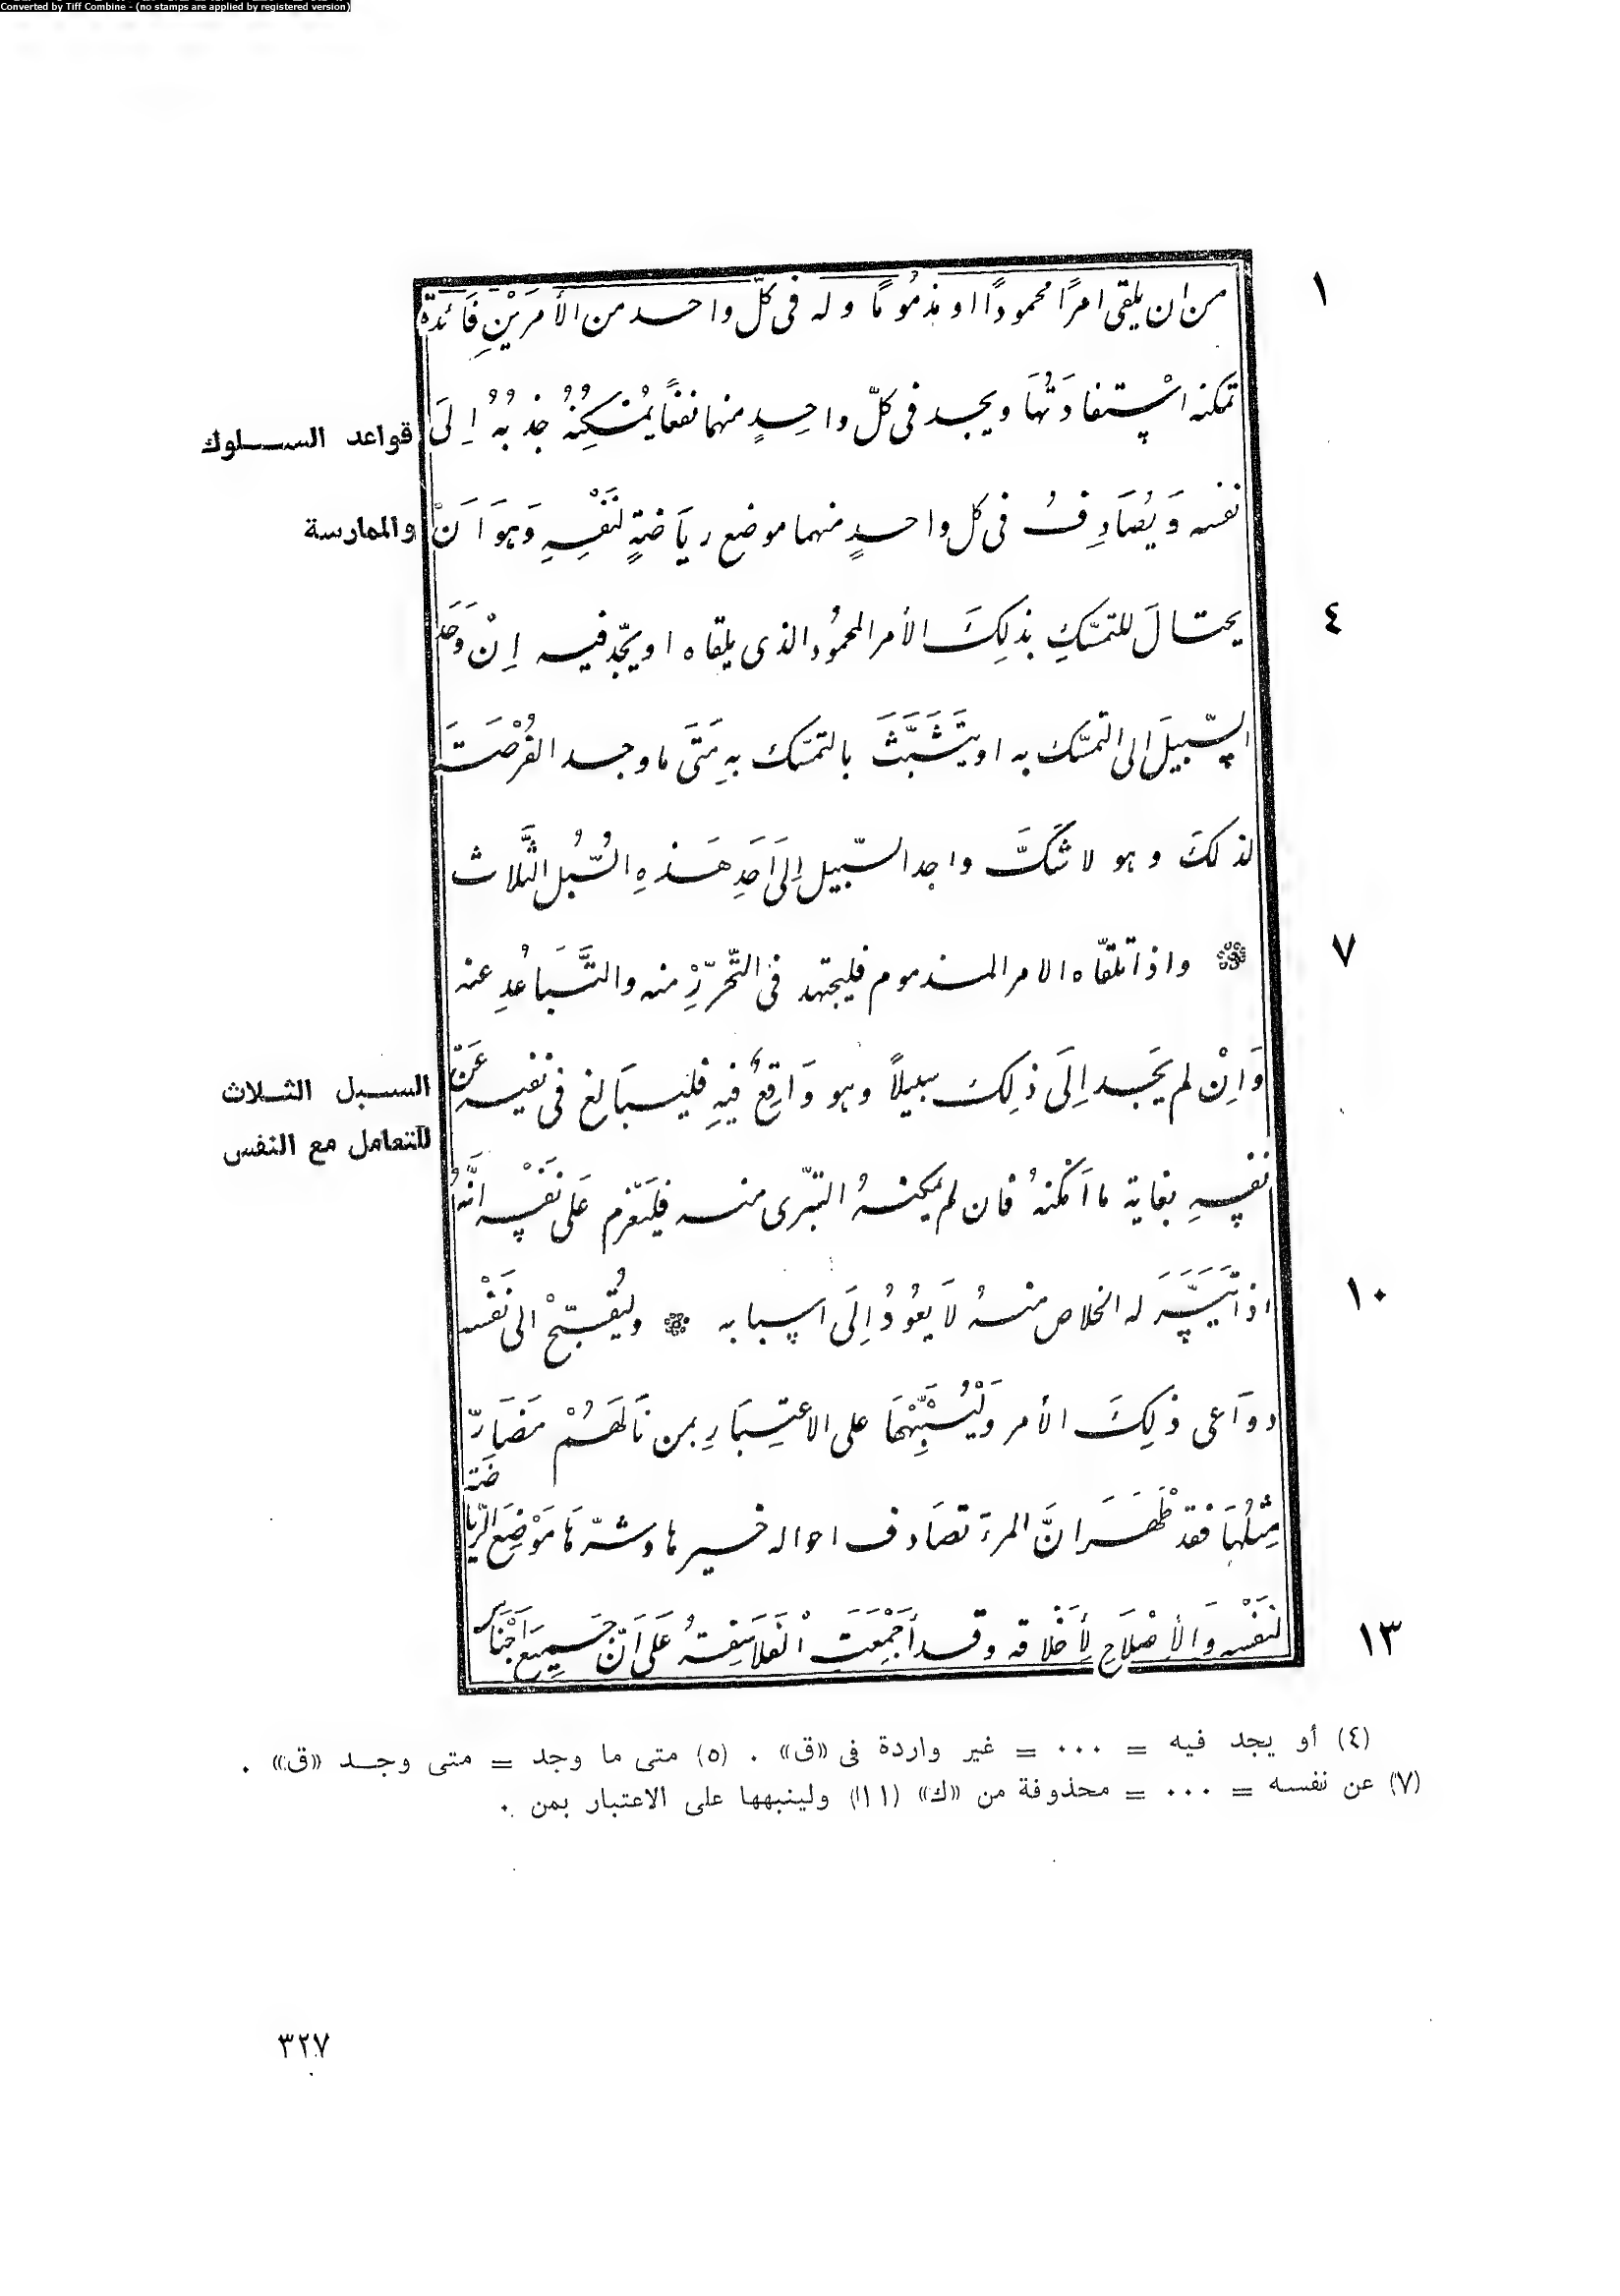 Converted by Tiff Combine - (no stamps are applied by registered version)
١
من ان يلقى امرًا محمودًا او مذمُومًا وله فى كلّ واحد من الأمرَيْنِ فَائدة
تمكنه اسْتفادَتُهَا ويجد فى كلّ واحِدٍ منهما نفعًا يُمْكِنُهُ جذبُهُ اِلَى
قواعد السلوك
نفسه وَيُصَادِفُ فى كل واحدٍ منهما موضع ريَاضةٍ لنَفْسِهِ وَهوَ اَنْ
والممارسة
٤
يحتالَ للتمسّكِ بذلِكَ الأمر المحمُود الذى يلقاه او يجّد فيه اِنْ وَجَد
السّبيلَ الى التمسّك به او يتَشَبَّثَ بالتمسّك بهِ مَتَى ما وجد الفُرْصَتَ
لذلكَ وهو لا شَكَّ واجد السّبيل اِلَى اَحَدِ هَذهِ السُّبُل الثَّلاث
٧
واذا تلقّاه الامر المذموم فليجتهد فى التَّحَرّزِ منه والتَّبَاعُدِ عنه
وَاِنْ لم يَجد اِلَى ذلِكَ سبيلاً وهو وَاقِعٌ فيهِ فليبَالغ فى نفيه عَنْ
السبل الثلاث
للتعامل مع النفس
نفسِهِ بغاية ما اَمْكنهُ فان لم يمكنهُ التبّرى منه فليَعْزم عَلى نَفْسه انَّهُ
١٠
اذا تَيَسَّرَ له الخلاص منهُ لاَ يعُودُ اِلَى اسبابه وليُقبّحْ الى نَفْسه
دوَاعى ذلِكَ الأمر وَلْيُنبِّهْهَا على الاعتِبَارِ بمن نَالَهَمُ مَضَارّ
مِثلُهَا فقد ظَهَرَ انَّ المرءَ تصَادف احواله خيرها وشرّهَا مَوْضِعَ الرّيَاضَة
١٣
لنَفْسه وَالأِصْلاَحِ لأَِخْلاقه وقد أَجْمَعَتِ الْفَلاَسِفةُ عَلَى انّ جَمِيعَ اَجْنَاسِ
(٤) أو يجد فيه = ٠٠٠ = غير واردة فى «ق» . (٥) متى ما وجد = متى وجد «ق» .
(٧) عن نفسه = ٠٠٠ = محذوفة من «ك» (١١) ولينبهها على الاعتبار بمن .
٣٢٧